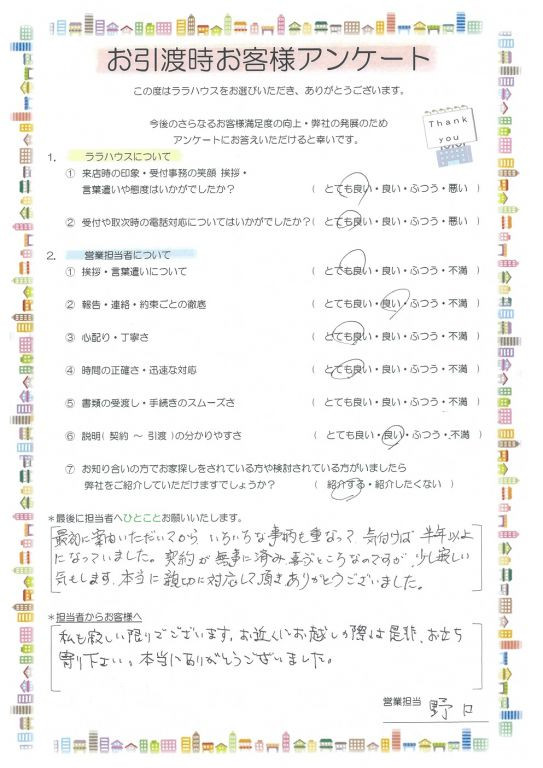 お引渡時お客様アンケート
この度はララハウスをお選びいただき、ありがとうございます。
今後のさらなるお客様満足度の向上・弊社の発展のため
アンケートにお答えいただけると幸いです。
Thank
you
1. ララハウスについて
① 来店時の印象・受付事務の笑顔 挨拶・
言葉遣いや態度はいかがでしたか? ( とても良い・良い・ふつう・悪い )
② 受付や取次時の電話対応についてはいかがでしたか?( とても良い・良い・ふつう・悪い )
2. 営業担当者について
① 挨拶・言葉遣いについて ( とても良い・良い・ふつう・不満 )
② 報告・連絡・約束ごとの徹底 ( とても良い・良い・ふつう・不満 )
③ 心配り・丁寧さ ( とても良い・良い・ふつう・不満 )
④ 時間の正確さ・迅速な対応 ( とても良い・良い・ふつう・不満 )
⑤ 書類の受渡し・手続きのスムーズさ ( とても良い・良い・ふつう・不満 )
⑥ 説明( 契約 ~ 引渡 )の分かりやすさ ( とても良い・良い・ふつう・不満 )
⑦ お知り合いの方でお家探しをされている方や検討されている方がいましたら
弊社をご紹介していただけますでしょうか? ( 紹介する・紹介したくない )
*最後に担当者へひとことお願いいたします。
最初に案内いただいてから、いろいろな事柄も重なって、気付けば半年以上
になっていました。契約が無事に済み喜ぶところなのですが、少し寂しい
気もします。本当に親切に対応して頂きありがとうございました。
*担当者からお客様へ
私も寂しい限りでございます。お近くにお越しの際は是非、お立ち
寄り下さい。本当にありがとうございました。
営業担当 野口